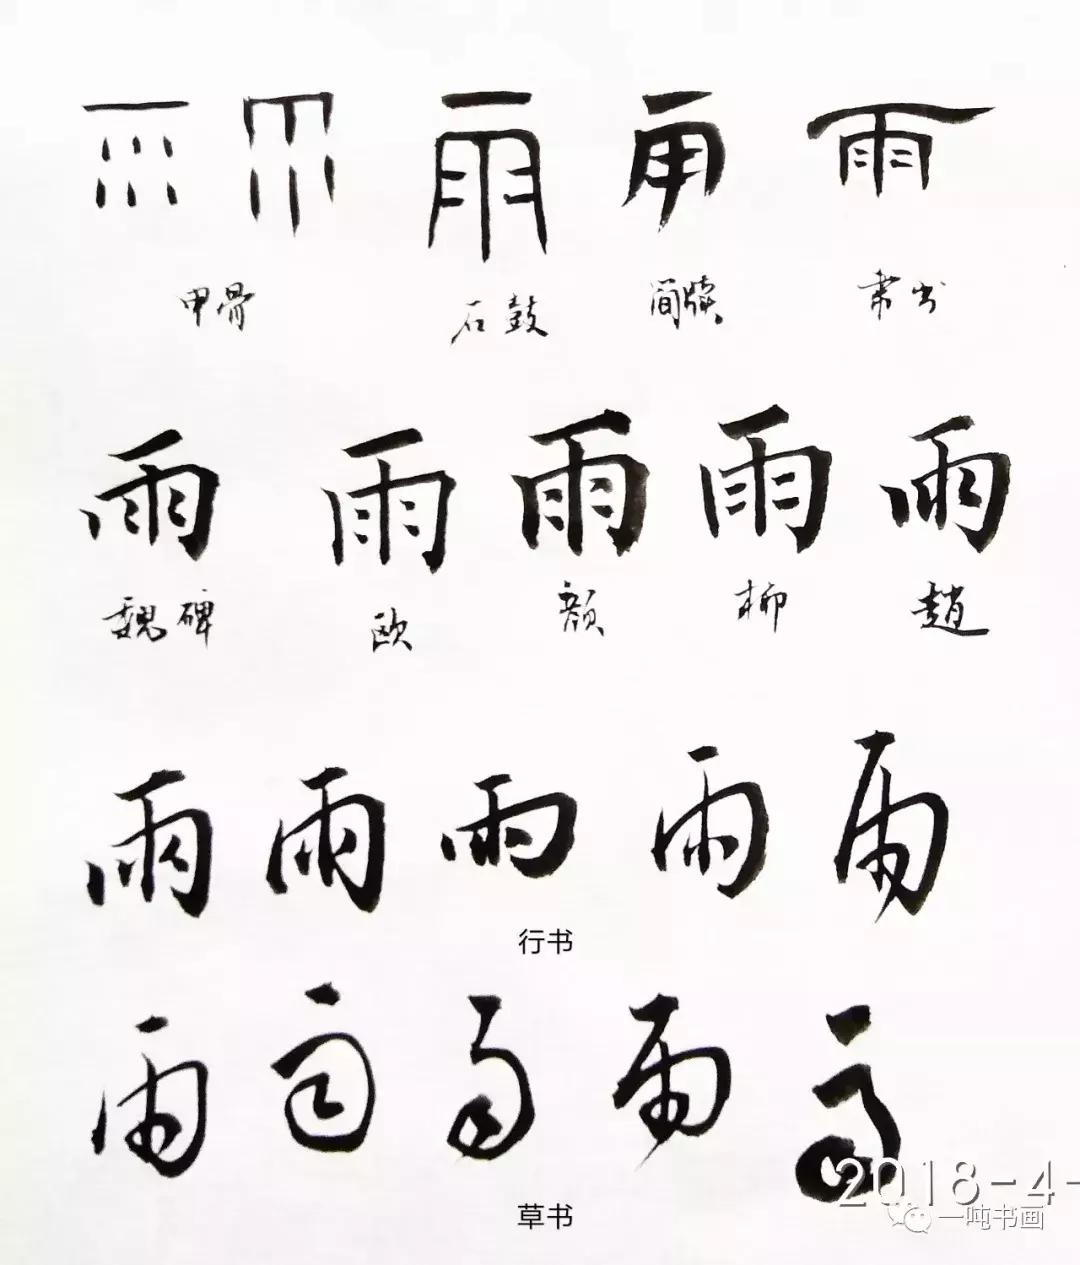 雨 雨 雨 雨 雨
甲骨 石鼓 简牍 隶书
雨 雨 雨 雨 雨
魏碑 欧 颜 柳 趙
雨 雨 雨 雨 雨
行书
雨 雨 雨 雨 雨
草书
2018-4-
一吨书画